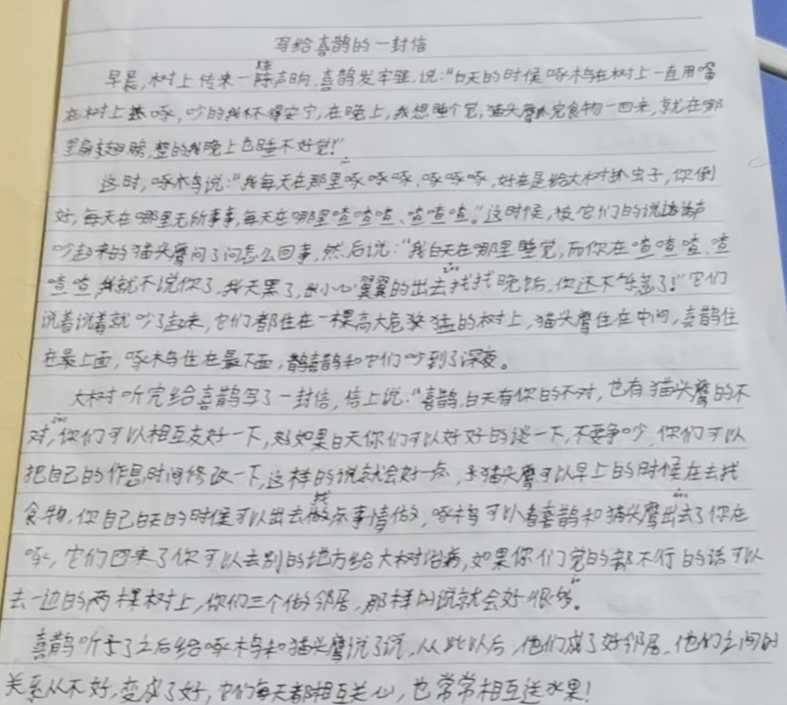 写给喜鹊的一封信
早晨,树上传来一阵声响,喜鹊发牢骚,说:"白天的时候啄木鸟在树上一直用嘴
在树上啄,吵的我不得安宁,在晚上,我想睡个觉,猫头鹰吃完食物一回来,就在那
里扇翅膀,整的我晚上也睡不好觉!"
这时,啄木鸟说:"我每天在那里啄啄啄、啄啄啄,好在是给大树抓虫子,你倒
好,每天在哪里无所事事,每天在哪里喳喳喳、喳喳喳。"这时候,被它们的说话声
吵起来的猫头鹰问了问怎么回事,然后说:"我白天在哪里睡觉,而你在喳喳喳、喳
喳喳,我就不说你了,我天黑了,小心翼翼的出去找找晚饭,你还不乐意了!"它们
说着说着就吵了起来,它们都住在一棵高大的树上,猫头鹰住在中间,喜鹊住
在最上面,啄木鸟住在最下面,喜鹊和它们吵到了深夜。
大树听完给喜鹊写了一封信,信上说:"喜鹊,白天有你的不对,也有猫头鹰的不
对,你们可以相互友好一下,如果白天你们可以好好的说一下,不要争吵,你们可以
把自己的作息时间修改一下,这样的说就会好一点,猫头鹰可以早上的时候在去找
食物,你自己白天的时候可以出去找点事情做,啄木鸟可以看喜鹊和猫头鹰出去了你在
啄,它们回来了你可以去别的地方给大树治病,如果你们觉的都不行的话可以
去一边的两棵树上,你们三个做邻居,那样的说就会好很多。
喜鹊听了之后给啄木鸟和猫头鹰说了说,从此以后,他们成了好邻居,他们之间的
关系从不好,变成了好,它们每天都相互关心,也常常相互送水果!